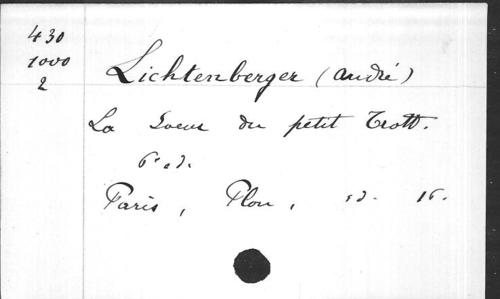 430
1000
2
Lichtenberger (André)
La Soeur du petit Trott.
6e ed.
Paris, Plon, sd. 16.